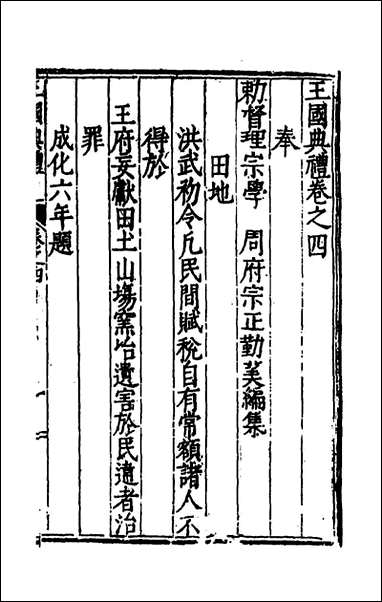 王國典禮卷之四
奉
勑督理宗學 周府宗正勤羙編集
田地
洪武初令凡民間賦稅自有常額諸人不
得於
王府妄獻田土山塲窯冶遺害於民違者治
罪
成化六年題
王國典禮